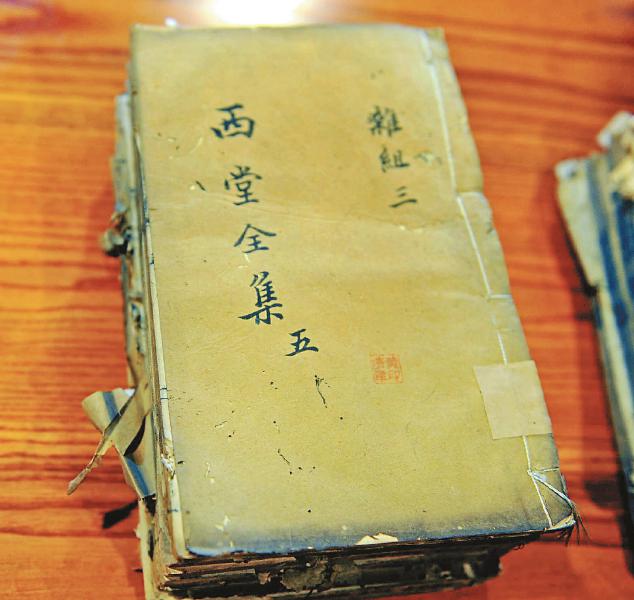 雜組三
西堂全集五